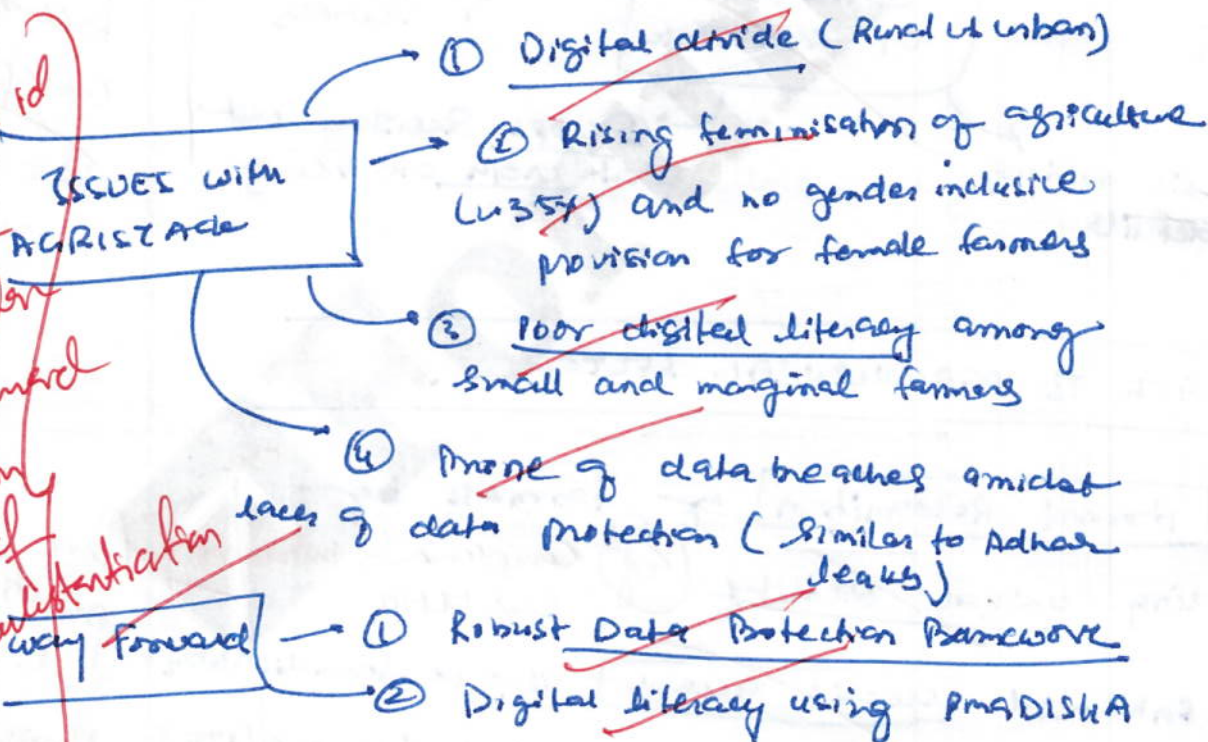 ① Digital divide (Rural vs urban)
ISSUES with
AGRISTACK
② Rising feminisation of agriculture
and no gender inclusive
provision for female farmers
③ Poor digital literacy among
small and marginal farmers
④ Prone of data breaches amidst
lack of data protection (Similar to Adhar
leaks)
way Forward
① Robust Data Protection
② Digital literacy using PMGDISHA
id
of